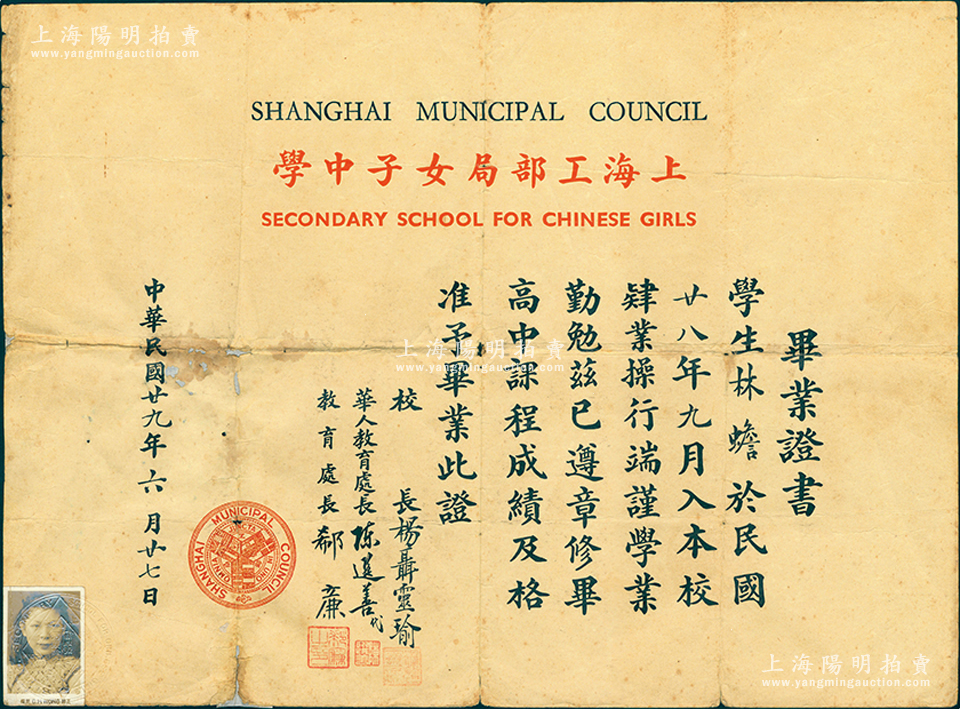 上海陽明拍賣
www.yangmingauction.com
SHANGHAI MUNICIPAL COUNCIL
上海工部局女子中學
SECONDARY SCHOOL FOR CHINESE GIRLS
畢業證書
學生林蟾於民國
廿八年九月入本校
肄業操行端謹學業
勤勉茲已遵章修畢
高中課程成績及格
准予畢業此證
校長楊聶靈瑜
華人教育處長陳選善代
教育處長郗廉
中華民國廿九年六月廿七日
SHANGHAI MUNICIPAL COUNCIL
OMNIA JUNCTA IN UNO
上海陽明拍賣
www.yangmingauction.com
上海陽明拍賣
www.yangmingauction.com